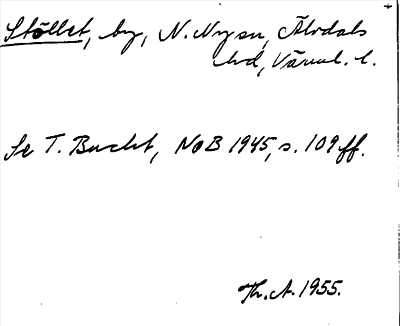 Stöllet, by, N. Nysn, Älvdals
hd, Värml. l.
Se T. Bucht, NoB 1945, s. 109 ff.
Th. A. 1955.